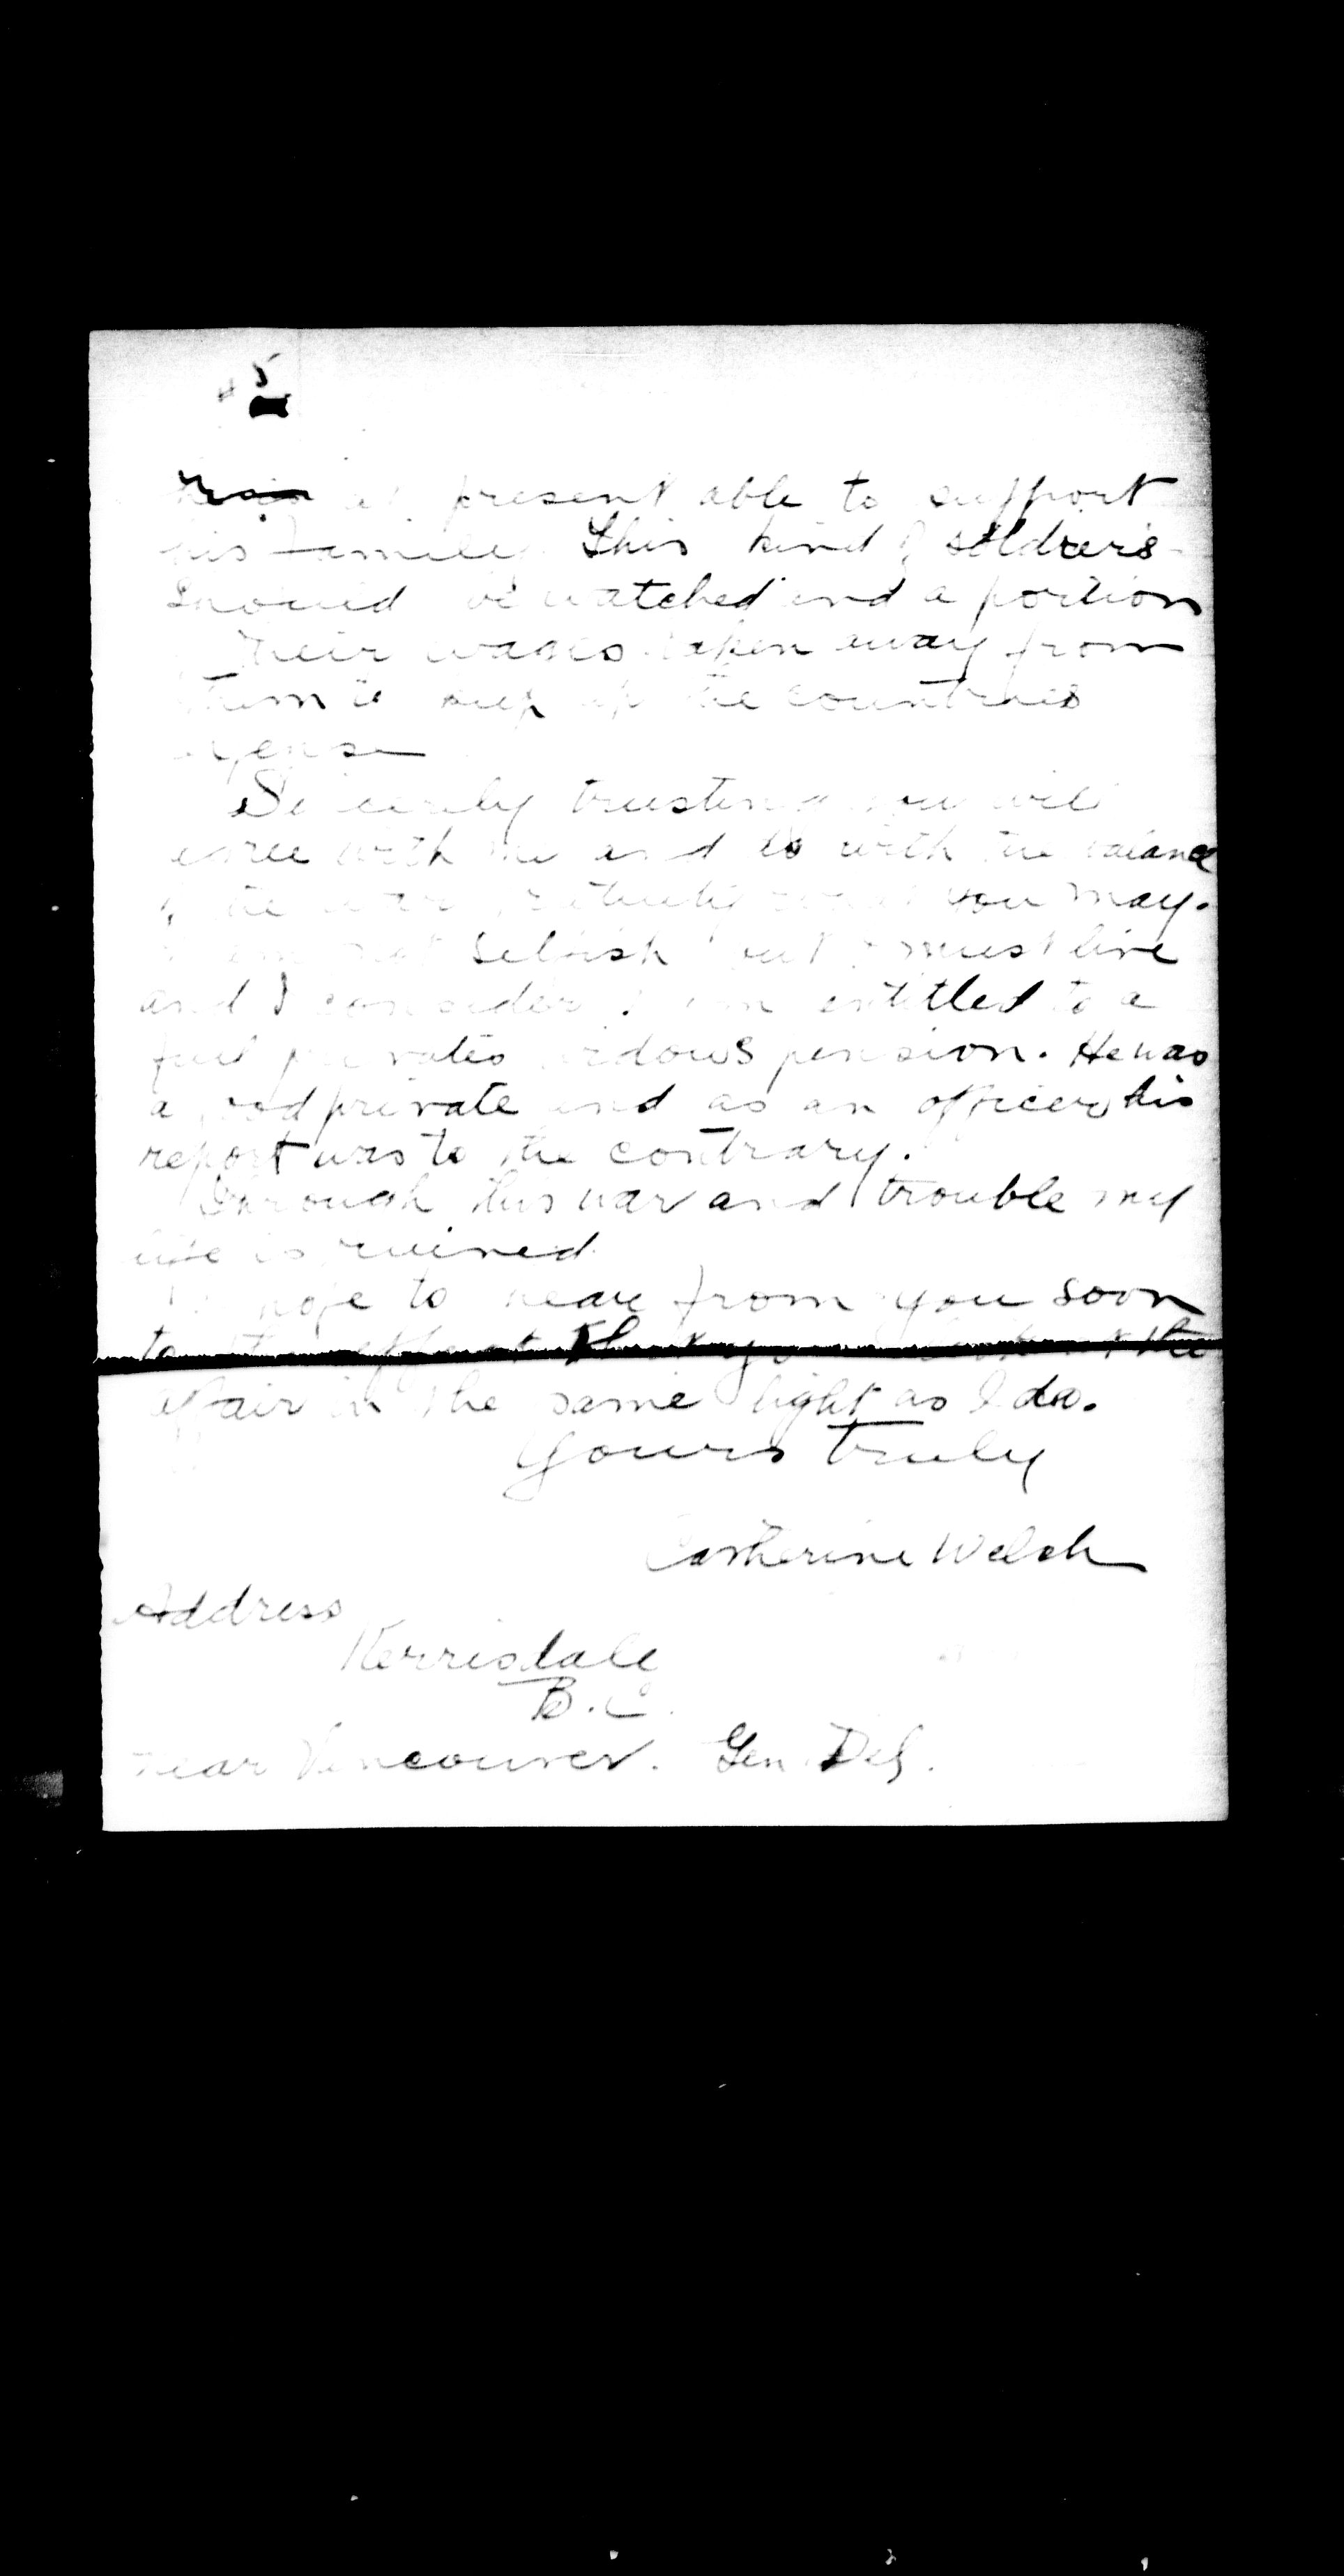 # 5
he is at present able to support
his family. This kind of soldiers
should be watched and a portion
their wages taken away from
them to keep up the countries
expense
Sincerely trusting you will
agree with me and do with the balance
of the you may.
I am not selfish but I must live
and I consider I am entitled to a
full privates widows pension. He was
a good private and as an officer his
report was to the contrary.
Through this war and trouble my
life is ruined.
I hope to hear from you soon
to the effect that you look at the
affair in the same light as I do.
Yours truly
Catherine Welch
Address
Kerrisdale
B.C.
near Vancouver. Gen. Del.